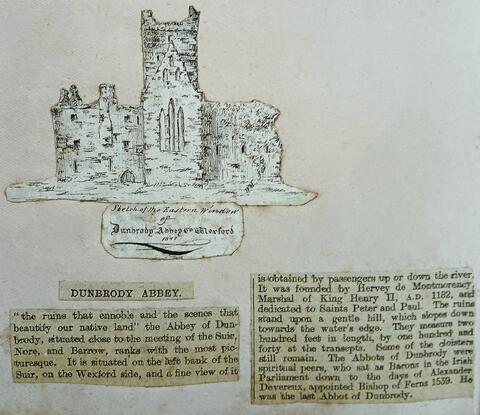 Sketch of the Eastern Window
of
Dunbrody Abbey Co Wexford
DUNBRODY ABBEY.
"the ruins that ennoble and the scenes that
beautify our native land" the Abbey of Dun-
brody, situated close to the meeting of the Suir,
Nore, and Barrow, ranks with the most pic-
turesque. It is situated on the left bank of the
Suir, on the Wexford side, and a fine view of it
is obtained by passengers up or down the river.
It was founded by Hervey de Montmorency,
Marshal of King Henry II, A.D. 1182, and
dedicated to Saints Peter and Paul. The ruins
stand upon a gentle hill, which slopes down
towards the water's edge. They measure two
hundred feet in length, by one hundred and
forty at the transepts. Some of the cloisters
still remain. The Abbots of Dunbrody were
spiritual peers, who sat as Barons in the Irish
Parliament down to the days of Alexander
Devereux, appointed Bishop of Ferns 1539. He
was the last Abbot of Dunbrody.